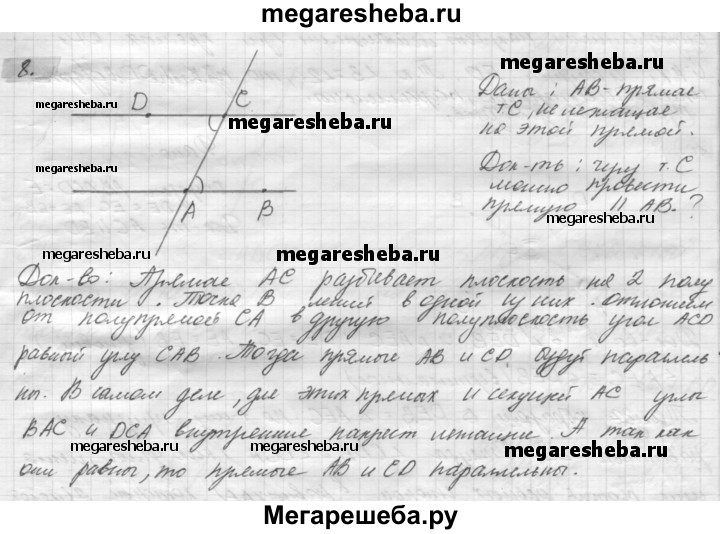 megaresheba.ru
8.
megaresheba.ru
megaresheba.ru
D
C
megaresheba.ru
megaresheba.ru
A
B
Даны: AB - прямая
т C, не лежащая
на этой прямой.
Док-ть: чрез т. C
можно провести
прямую || AB. ?
megaresheba.ru
megaresheba.ru
megaresheba.ru
Док-во: Прямая AC разбивает плоскость на 2 полу
плоскости. Точка B лежит в одной из них. отложим
от полупрямой CA в другую полуплоскость угол ACD
равный углу CAB. Тогда прямые AB и CD будут параллель
ны. В самом деле, для этих прямых и секущей AC углы
BAC и DCA внутренние накрест лежащие. А так как
они равны, то прямые AB и CD параллельны.
megaresheba.ru
megaresheba.ru
megaresheba.ru
megaresheba.ru
Мегарешеба.ру